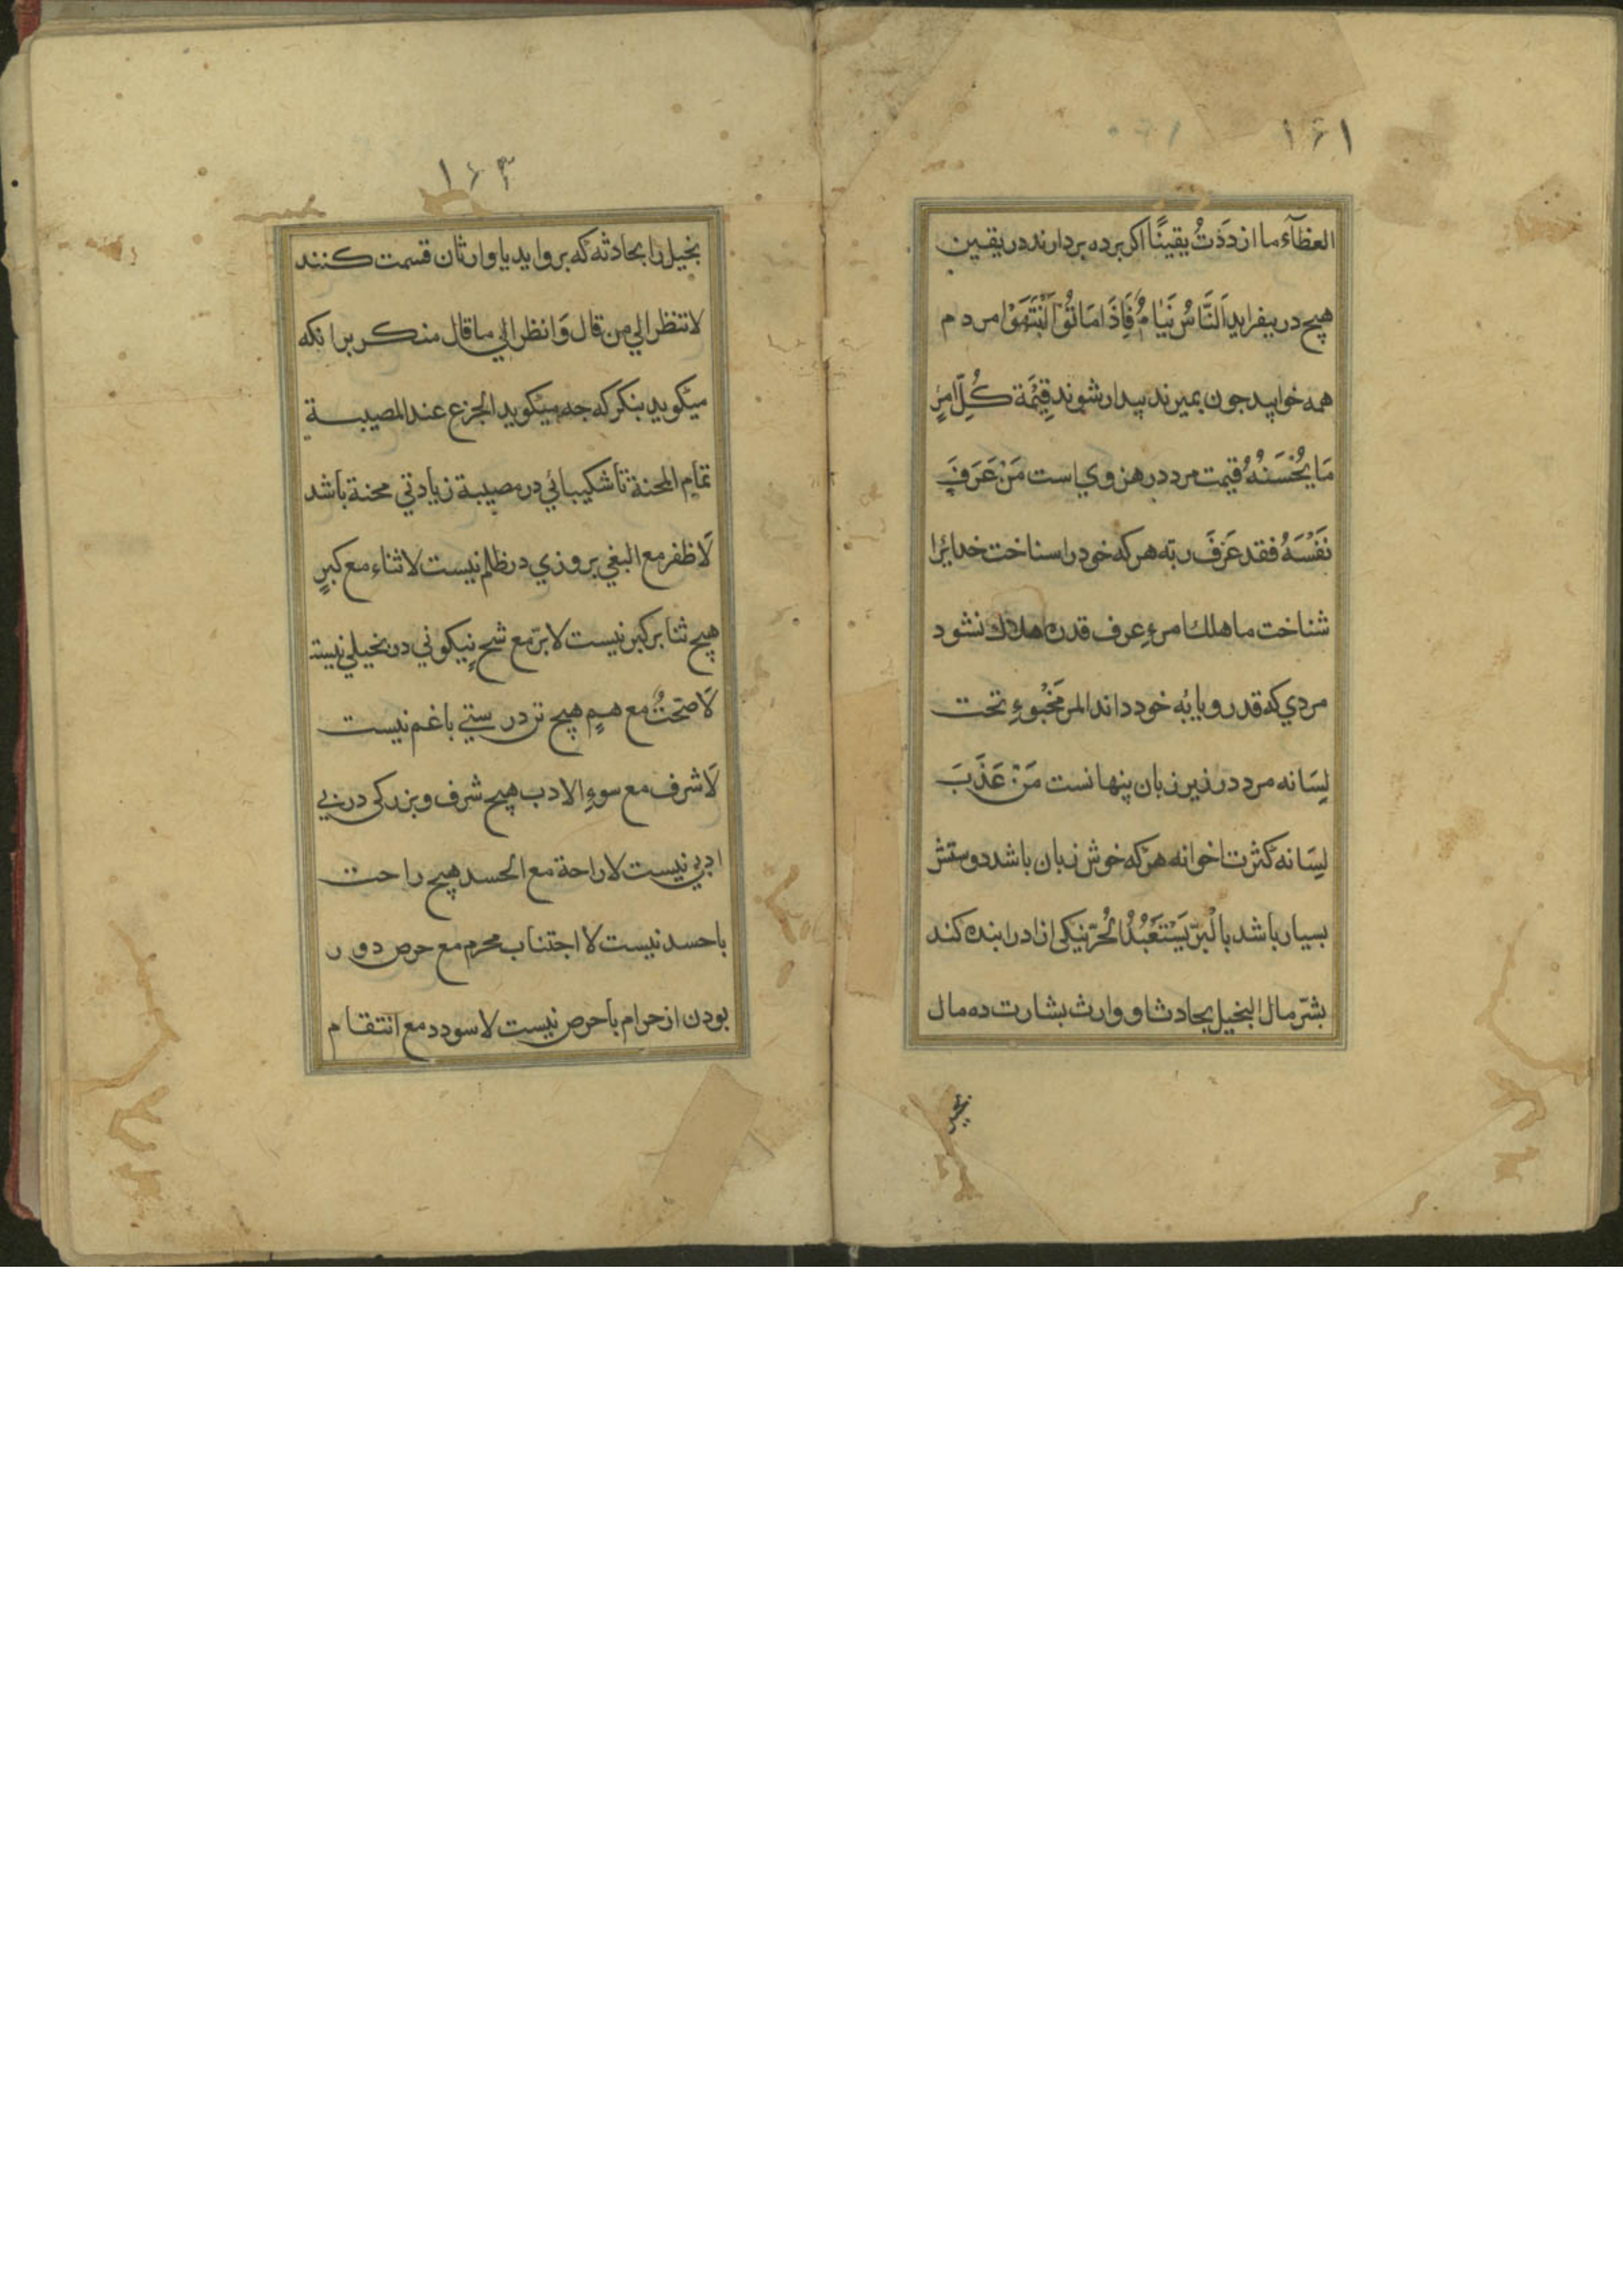 ۱۶۱
العظآء ما ازددَتُ يقينًا اكر برده بردارند در يقين
هيج در بيفرايد اَلنَّاسُ نَيَامٌ فَاِذَا مَاتُوْا اَنْتَهَوْا مردم
همه خوابيد جون بميرند بيدار شوند قِيْمَة كُلِّ امرٍئٍ
مَا يُحْسَنُهُ قيمت مرد در هنر وي است مَنْ عَرَفَ
نَفْسَهُ فقد عَرَفَ ربّه هر كه خود را سناخت خدايرا
شناخت ما هلك امرءٍ عرف قدره هلاك نشود
مردي كه قدر و بايۀ خود داند المر مَخْبُوءٍ تحت
لِسَانه مرد در زير زبان پنهانست مَنْ عَذَبَ
لِسَانه كثرت اخوانه هر كه خوش زبان باشد دوستش
بسيار باشد بالْبِرّ يَسْتَعْبُدُ الُحرّ نيكى ازاد را بنده كند
بشّر مال البخيل بحادثا و وارث بشارت ده مال
بخيل
۱۶۲
بخيل را بحادثه كه برو ايد يا وارثان قسمت كنند
لا تنظر الي من قال وَانظر الي ما قال منكر برانكه
ميگويد بنكر كه جه ميگويد الجزع عند المصيبة
تمام المحنة ناشكيبائي در مصيبة زيادتي محنة باشد
لَا ظفر مع البغي بروزي در ظلم نيست لا ثناء مع كبرٍ
هيج ثنا بر كبر نيست لا برّ مع شحٍ نيكوني در بخيلي نيست
لَا صحّتٌ مع همٍ هيج تن درستي با غم نيست
لَا شرف مع سوءِ الادب هيج شرف و بزركى در بي
ادبي نيست لا راحة مع الحسد هيج راحت
با حسد نيست لا اجتناب محرم مع حرص دور
بودن از حرام با حرص نيست لا سودد مع انتقام